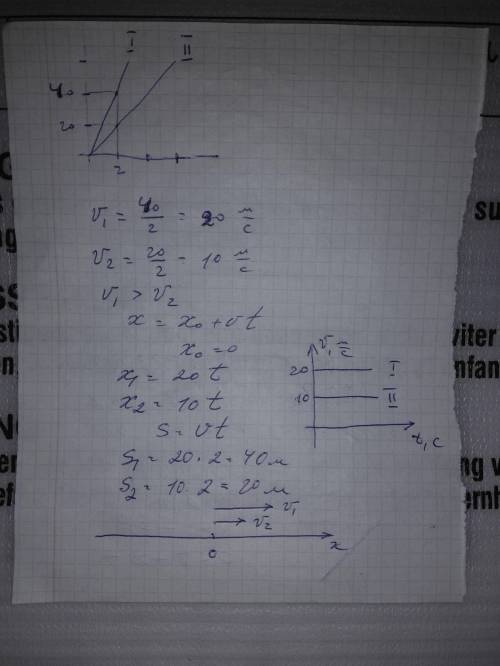 I II
40
20
2
v₁ = 40/2 = 20 м/с
v₂ = 20/2 = 10 м/с
v₁ > v₂
x = x₀ + vt
x₀ = 0
x₁ = 20t
x₂ = 10t
s = vt
s₁ = 20 · 2 = 40 м
s₂ = 10 · 2 = 20 м
v₁
v₂
0 x
v, м/с
20 I
10 II
t, с
su
viter
nfan
ng v
ernh